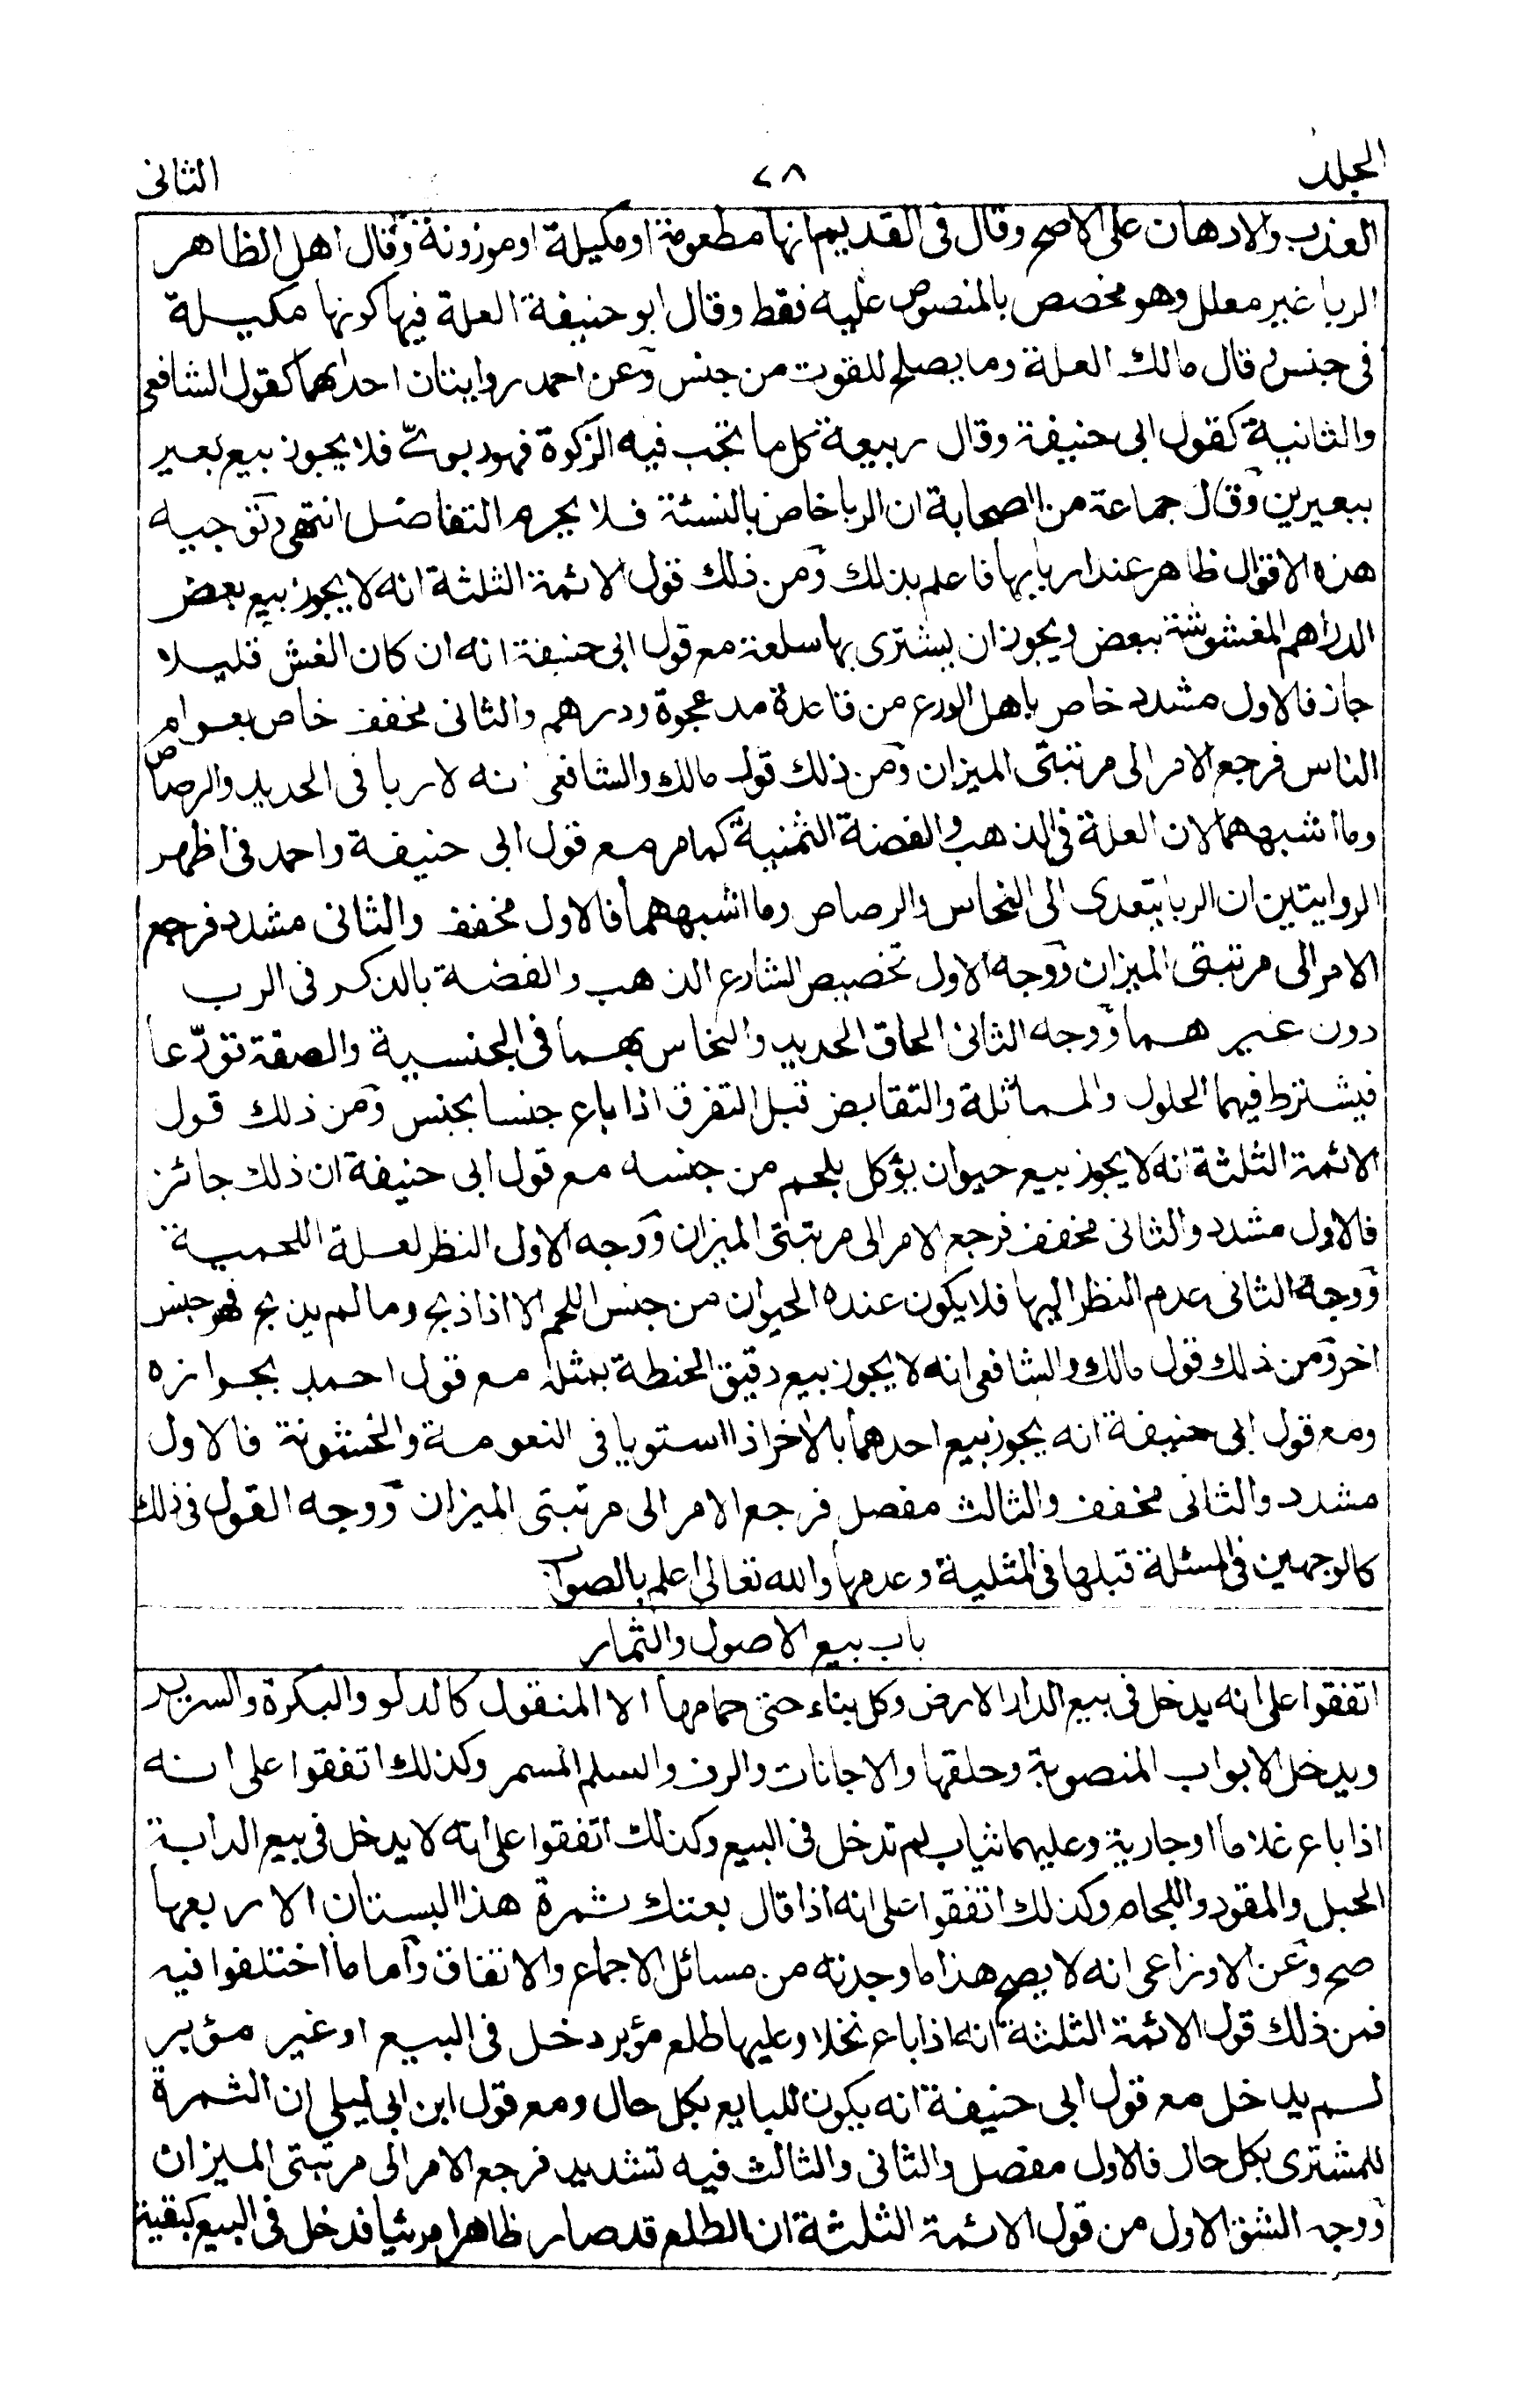 الجلد ٢٨ الثانى
العذب والادهان على الاصح وقال فى القديم انها مطعومة او مكيلة او موزونة وقال اهل الظاهر
الربا غير معلل وهو مخصص بالمنصوص عليه فقط وقال ابو حنيفة العلة فيها كونها مكيلة
فى جنس قال مالك العلة وما يصلح للقوت من جنس وعن احمد روايتان احداهما كقول الشافعى
والثانية كقول ابى حنيفة وقال ربيعة كل ما تجب فيه الزكوة فهو ربوىّ فلا يجوز بيع بعير
ببعيرين وقال جماعة من الصحابة ان الربا خاص بالنسئة فلا يحرم التفاضل انتهى وتوجيه
هذه الاقوال ظاهر عند اربابها فاعلم بذلك ومن ذلك قول الائمة الثلثة انه لا يجوز بيع بعض
الدراهم المغشوشة ببعض ويجوز ان يشترى بها سلعة مع قول ابى حنيفة انه ان كان الغش قليلا
جاز فالاول مشدد خاص باهل الورع من قاعدة مد عجوة ودرهم والثانى مخفف خاص بعوام
الناس فرجع الامر الى مرتبتى الميزان ومن ذلك قول مالك والشافعى انه لا ربا فى الحديد والرصاص
وما اشبههما لان العلة فى الذهب والفضة الثمنية كما مر مع قول ابى حنيفة واحمد فى اظهر
الروايتين ان الربا يتعدى الى النحاس والرصاص وما اشبههما فالاول مخفف والثانى مشدد فرجع
الامر الى مرتبتى الميزان ووجه الاول تخصيص الشارع الذهب والفضة بالذكر فى الرب
دون غيرهما ووجه الثانى الحاق الحديد والنحاس بهما فى الجنسية والصفة تورّعا
فيشترط فيهما الحلول والمماثلة والتقابض قبل التفرق اذا باع جنسا بجنس ومن ذلك قول
الائمة الثلثة انه لا يجوز بيع حيوان يؤكل بلحم من جنسه مع قول ابى حنيفة ان ذلك جائز
فالاول مشدد والثانى مخفف فرجع الامر الى مرتبتى الميزان ووجه الاول النظر لعلة اللحمية
ووجه الثانى عدم النظر اليها فلا يكون عنده الحيوان من جنس اللحم الا اذا ذبح وما لم يذبح فهو جنس
اخر ومن ذلك قول مالك والشافعى انه لا يجوز بيع دقيق الحنطة بمثله مع قول احمد بجوازه
ومع قول ابى حنيفة انه يجوز بيع احدهما بالاخر اذا استويا فى النعومة والخشونة فالاول
مشدد والثانى مخفف والثالث مفصل فرجع الامر الى مرتبتى الميزان ووجه القول فى ذلك
كالوجهين فى المسئلة قبلها فى المثلية وعدمها والله تعالى اعلم بالصواب
باب بيع الاصول والثمار
اتفقوا على انه يدخل فى بيع الدار الارض وكل بناء حتى حمامها الا المنقول كالدلو والبكرة والسرير
ويدخل الابواب المنصوبة وحلقها والاجانات والرف والسلم المسمر وكذلك اتفقوا على انه
اذا باع غلاما او جارية وعليهما ثياب لم تدخل فى البيع وكذلك اتفقوا على انه لا يدخل فى بيع الدابة
الحبل والمقود واللجام وكذلك اتفقوا على انه اذا قال بعتك ثمرة هذا البستان الا ربعها
صح وعن الاوزاعى انه لا يصح هذا ما وجدته من مسائل الاجماع والاتفاق واما ما اختلفوا فيه
فمن ذلك قول الائمة الثلثة انه اذا باع نخلا وعليها طلع مؤبر دخل فى البيع او غير مؤبر
لم يدخل مع قول ابى حنيفة انه يكون للبايع بكل حال ومع قول ابن ابى ليلى ان الثمرة
للمشترى بكل حال فالاول مفصل والثانى والثالث فيه تشديد فرجع الامر الى مرتبتى الميزان
ووجه الشق الاول من قول الائمة الثلثة ان الطلع قد صار ظاهرا مرئيا فدخل فى البيع كبقية